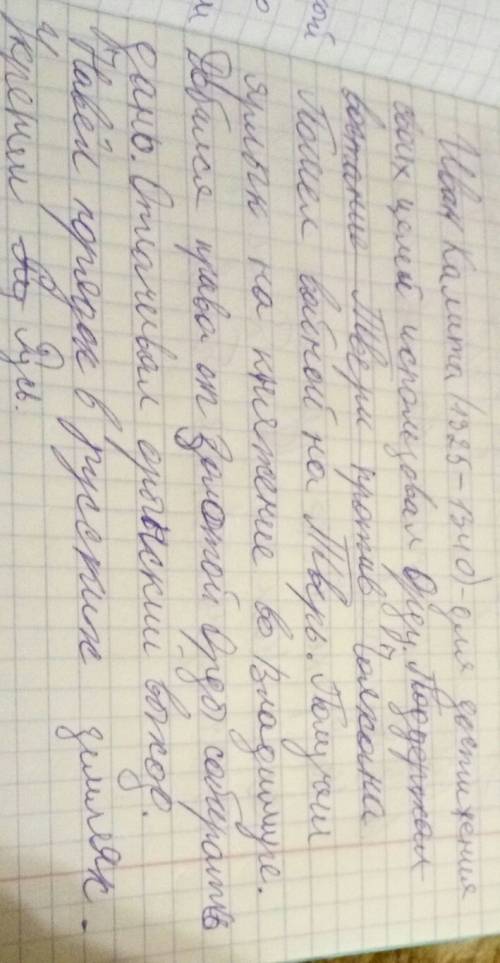 Иван Калита (1325-1340)-для достижения
своих целей использовал Орду. Поддержал
востание Твери против Чолхана
Пошел войной на Тверь. Получил
ярлык на княжение во Владимире.
Добился права от Золотой Орды собирать
дань. Отплачивал ордынский выход.
Навёл порядок в русских землях.
и укрепил Русь.